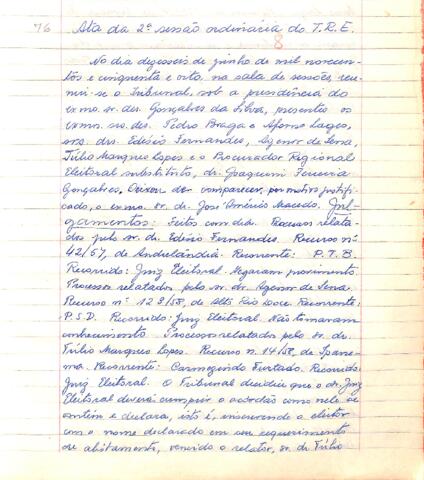 76 Ata da 2ª sessão ordinária do T.R.E.
8
No dia dezesseis de junho de mil novecen-
tos e cinquenta e oito, na sala de sessões, reu-
niu-se o Tribunal, sob a presidência do
exmo. sr. des. Gonçalves da Silva, presentes os
exmos. srs. des. Pedro Braga e Afonso Lages,
srs. drs. Edésio Fernandes, Agenor de Sena,
Túlio Marques Lopes e o Procurador Regional
Eleitoral substituto, dr. Joaquim Ferreira
Gonçalves. Deixou de comparecer, por motivo justifi-
cado, o exmo. sr. dr. José Américo Macedo. Jul-
gamentos: Feitos com dia. Processo relata-
do pelo sr. dr. Edésio Fernandes. Recurso nº
42/57, de Andrelândia. Recorrente: P.T.B.
Recorrido: Juiz Eleitoral. Negaram provimento.
Processo relatado pelo sr. dr. Agenor de Sena.
Recurso nº 128/58, de Alto Rio Doce. Recorrente:
P.S.D. Recorrido: Juiz Eleitoral. Não tomaram
conhecimento. Processo relatado pelo sr. dr.
Túlio Marques Lopes. Recurso n. 14/58, de Ipane-
ma. Recorrente: Furtado. Recorrido:
Juiz Eleitoral. O Tribunal decidiu que o dr. Juiz
Eleitoral deverá cumprir o acórdão como nele se
contém e declara, isto é, inscrevendo a eleitora
com o nome declarado em seu requerimento
de alistamento, vencido o relator, sr. dr. Túlio